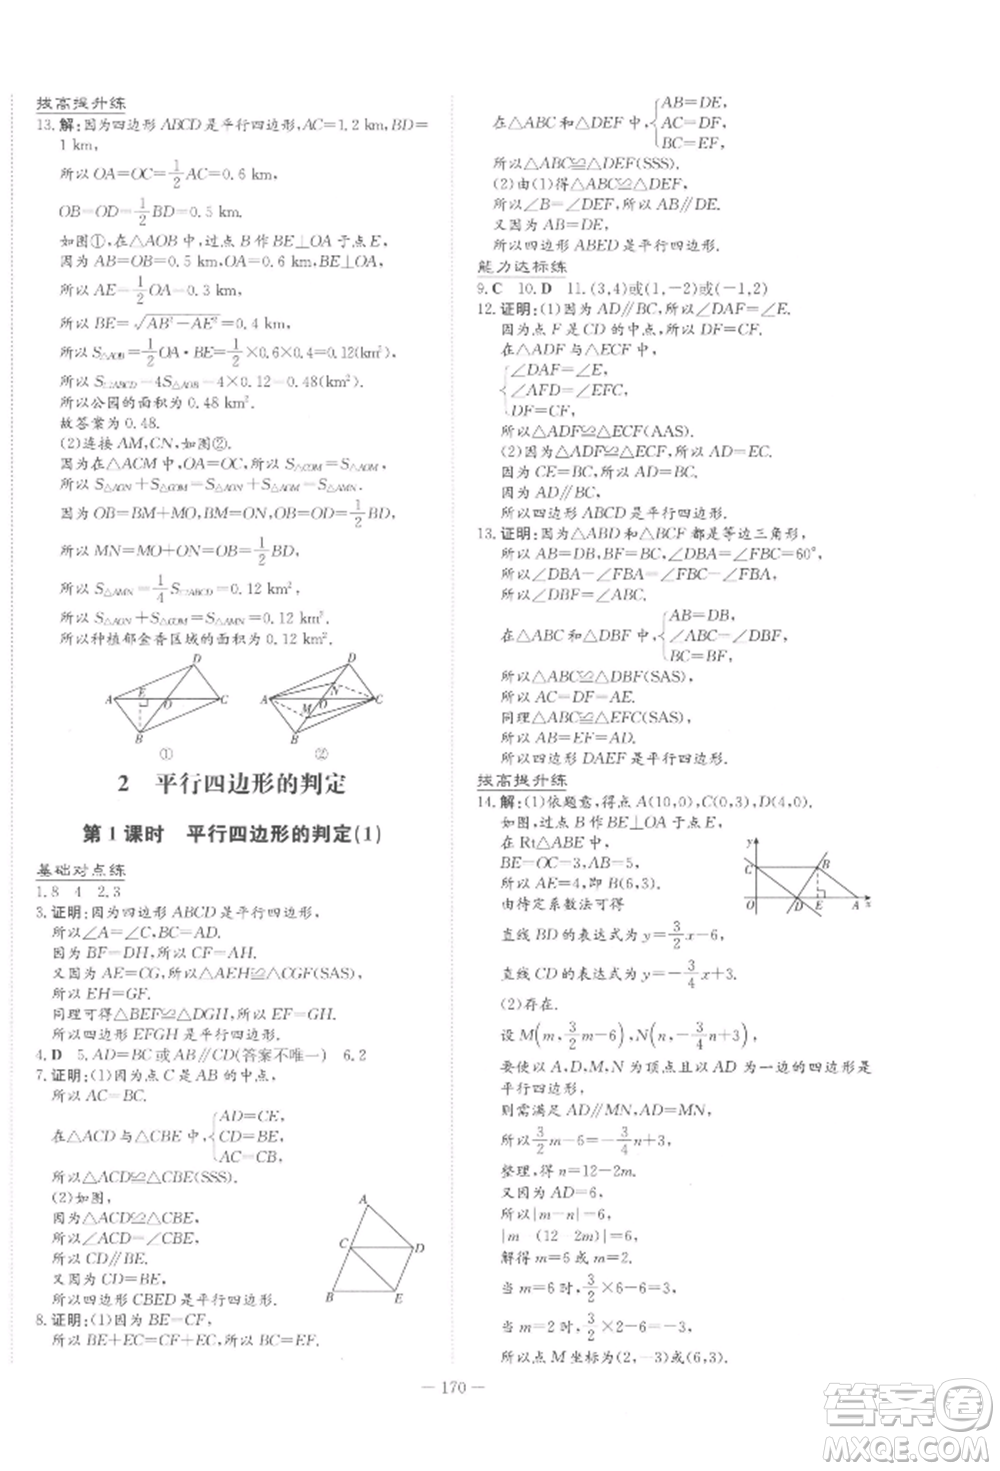 拔高提升练
13.解:因为四边形ABCD是平行四边形,AC=1.2 km,BD=
1 km,
所以OA=OC=1/2AC=0.6 km,
OB=OD=1/2BD=0.5 km.
如图①,在△AOB中,过点B作BE⊥OA于点E,
因为AB=OB=0.5 km,BE⊥OA,
所以AE=1/2OA=0.3 km,
所以BE=√(AB²-AE²)=0.4 km,
所以S△AOB=1/2OA·BE=1/2×0.6×0.4=0.12(km²)
所以S▱ABCD=4S△AOB=4×0.12=0.48(km²)
所以公园的面积为0.48 km².
故答案为0.48.
(2)连接AM,CN,如图②.
因为在△ACM中,OA=OC,所以S△COM=S△AOM,
所以S△AON+S△COM=S△AON+S△AOM=S△AMN,
因为OB=BM+MO,BM=ON,OB=1/2BD,
所以MN=MO+ON=OB=1/2BD,
所以S△AMN=1/4S▱ABCD=0.12 km²,
所以S△AON+S△COM=S△AMN=0.12 km².
所以种植郁金香区域的面积为0.12 km².
A B C D E O
①
A B C D M N O
②
2 平行四边形的判定
第1课时 平行四边形的判定(1)
基础对点练
1.8 4 2.3
3.证明:因为四边形ABCD是平行四边形,
所以∠A=∠C,BC=AD.
因为BF=DH,所以CF=AH.
又因为AE=CG,所以△AEH≌△CGF(SAS).
所以EH=GF.
同理可得△BEF≌△DGH,所以GH=EF.
所以四边形EFGH是平行四边形.
4.D 5.AD=BC或AB∥CD(答案不唯一) 6.2
7.证明:(1)因为点C是AB的中点,
所以AC=BC.
在△ACD与△CBE中,{AD=CE,
CD=BE,
AC=CB,
所以△ACD≌△CBE(SSS).
(2)如图,
因为△ACD≌△CBE,
所以∠ACD=∠CBE,
所以CD∥BE.
又因为CD=BE,
所以四边形CBED是平行四边形.
A C D B E
8.证明:(1)因为BE=CF,
所以BE+EC=CF+EC,所以BC=EF.
在△ABC和△DEF中,{AB=DE,
AC=DF,
BC=EF,
所以△ABC≌△DEF(SSS).
(2)由(1)得△ABC≌△DEF,
所以∠B=∠DEF,所以AB∥DE.
又因为AB=DE,
所以四边形ABED是平行四边形.
能力达标练
9.C 10.D 11.(3,4)或(1,-2)或(-1,2)
12.证明:(1)因为AD∥BC,所以∠DAF=∠E.
因为点F是CD的中点,所以DF=CF.
在△ADF与△ECF中,
{∠DAF=∠E,
∠AFD=∠EFC,
DF=CF,
所以△ADF≌△ECF(AAS).
(2)因为△ADF≌△ECF,所以AD=EC.
因为CE=BC,所以AD=BC.
因为AD∥BC,
所以四边形ABCD是平行四边形.
13.证明:因为△ABD和△BCF都是等边三角形,
所以AB=DB,BF=BC,∠DBA=∠FBC=60°,
所以∠DBA-∠FBA=∠FBC-∠FBA,
所以∠DBF=∠ABC.
在△ABC和△DBF中,{AB=DB,
∠ABC=∠DBF,
BC=BF,
所以△ABC≌△DBF(SAS).
所以AC=DF=AE.
同理△ABC≌△EFC(SAS),
所以AB=EF=AD.
所以四边形DAEF是平行四边形.
拔高提升练
14.解:(1)依题意,得点A(10,0),C(0,3),D(4,0).
如图,过点B作BE⊥OA于点E.
在Rt△ABE中,
BE=OC=3,AB=5,
所以AE=4,即B(6,3).
由待定系数法可得
直线BD的表达式为y=3/2x-6,
y C B O D E A x
直线CD的表达式为y=-3/4x+3.
(2)存在.
设M(m,3/2m-6),N(n,-3/4n+3),
要使以A,D,M,N为顶点且以AD为一边的四边形是
平行四边形,
则需满足AD∥MN,AD=MN,
所以3/2m-6=-3/4n+3,
整理,得n=12-2m.
又因为AD=6,
所以|m-n|=6,
|m (12-2m)|=6,
解得m=6或m=2.
当m=6时,3/2×6-6=3,
当m=2时,3/2×2-6=-3,
所以点M坐标为(2,-3)或(6,3).
— 170 —
答案圈
MXQE.COM